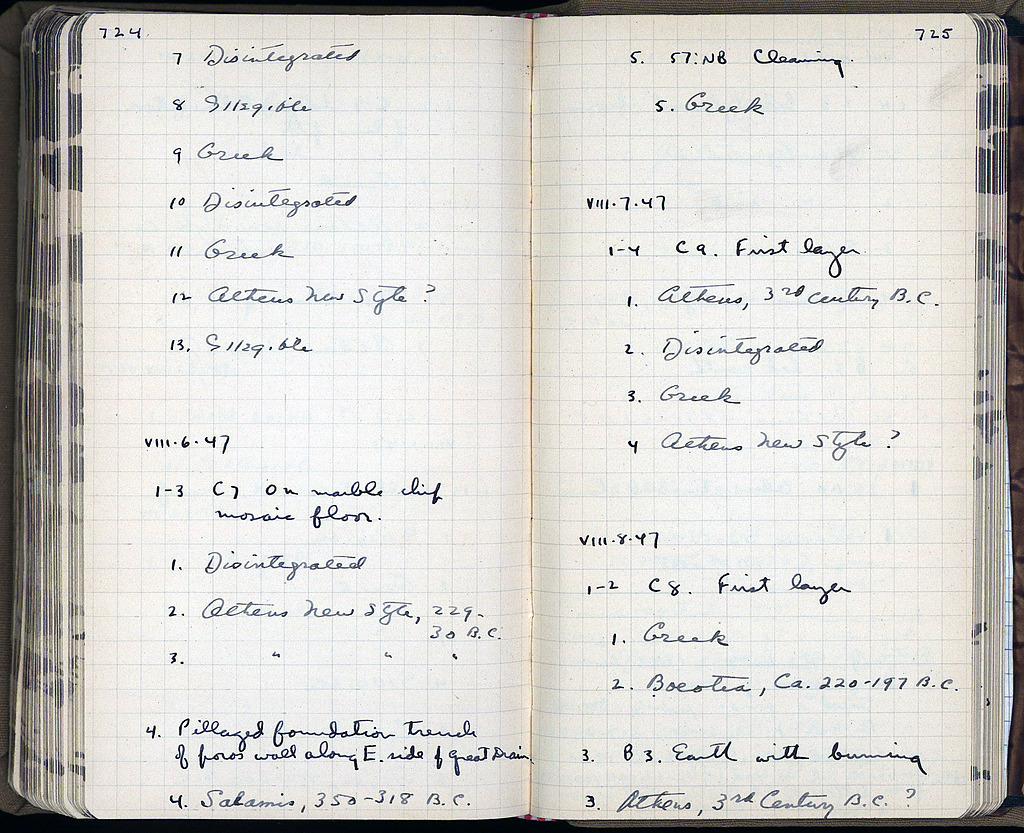 724
7 Disintegrated
8 Illegible
9 Greek
10 Disintegrated
11 Greek
12 Athens New Style ?
13. Illegible
VIII·6·47
1-3 C7 On marble chip
mosaic floor.
1. Disintegrated
2. Athens New Style, 229-
30 B.C.
3. " " "
4. Pillaged foundation trench
of poros wall along E. side of Great Drain.
4. Salamis, 350-318 B.C.
725
5. 57:NB Cleaning.
5. Greek
VIII·7·47
1-4 C9. First layer
1. Athens, 3rd century B.C.
2. Disintegrated
3. Greek
4 Athens New Style ?
VIII·8·47
1-2 C8. First layer
1. Greek
2. Boeotia, Ca. 220-197 B.C.
3. B3. Earth with burning
3. Athens, 3rd Century B.C. ?